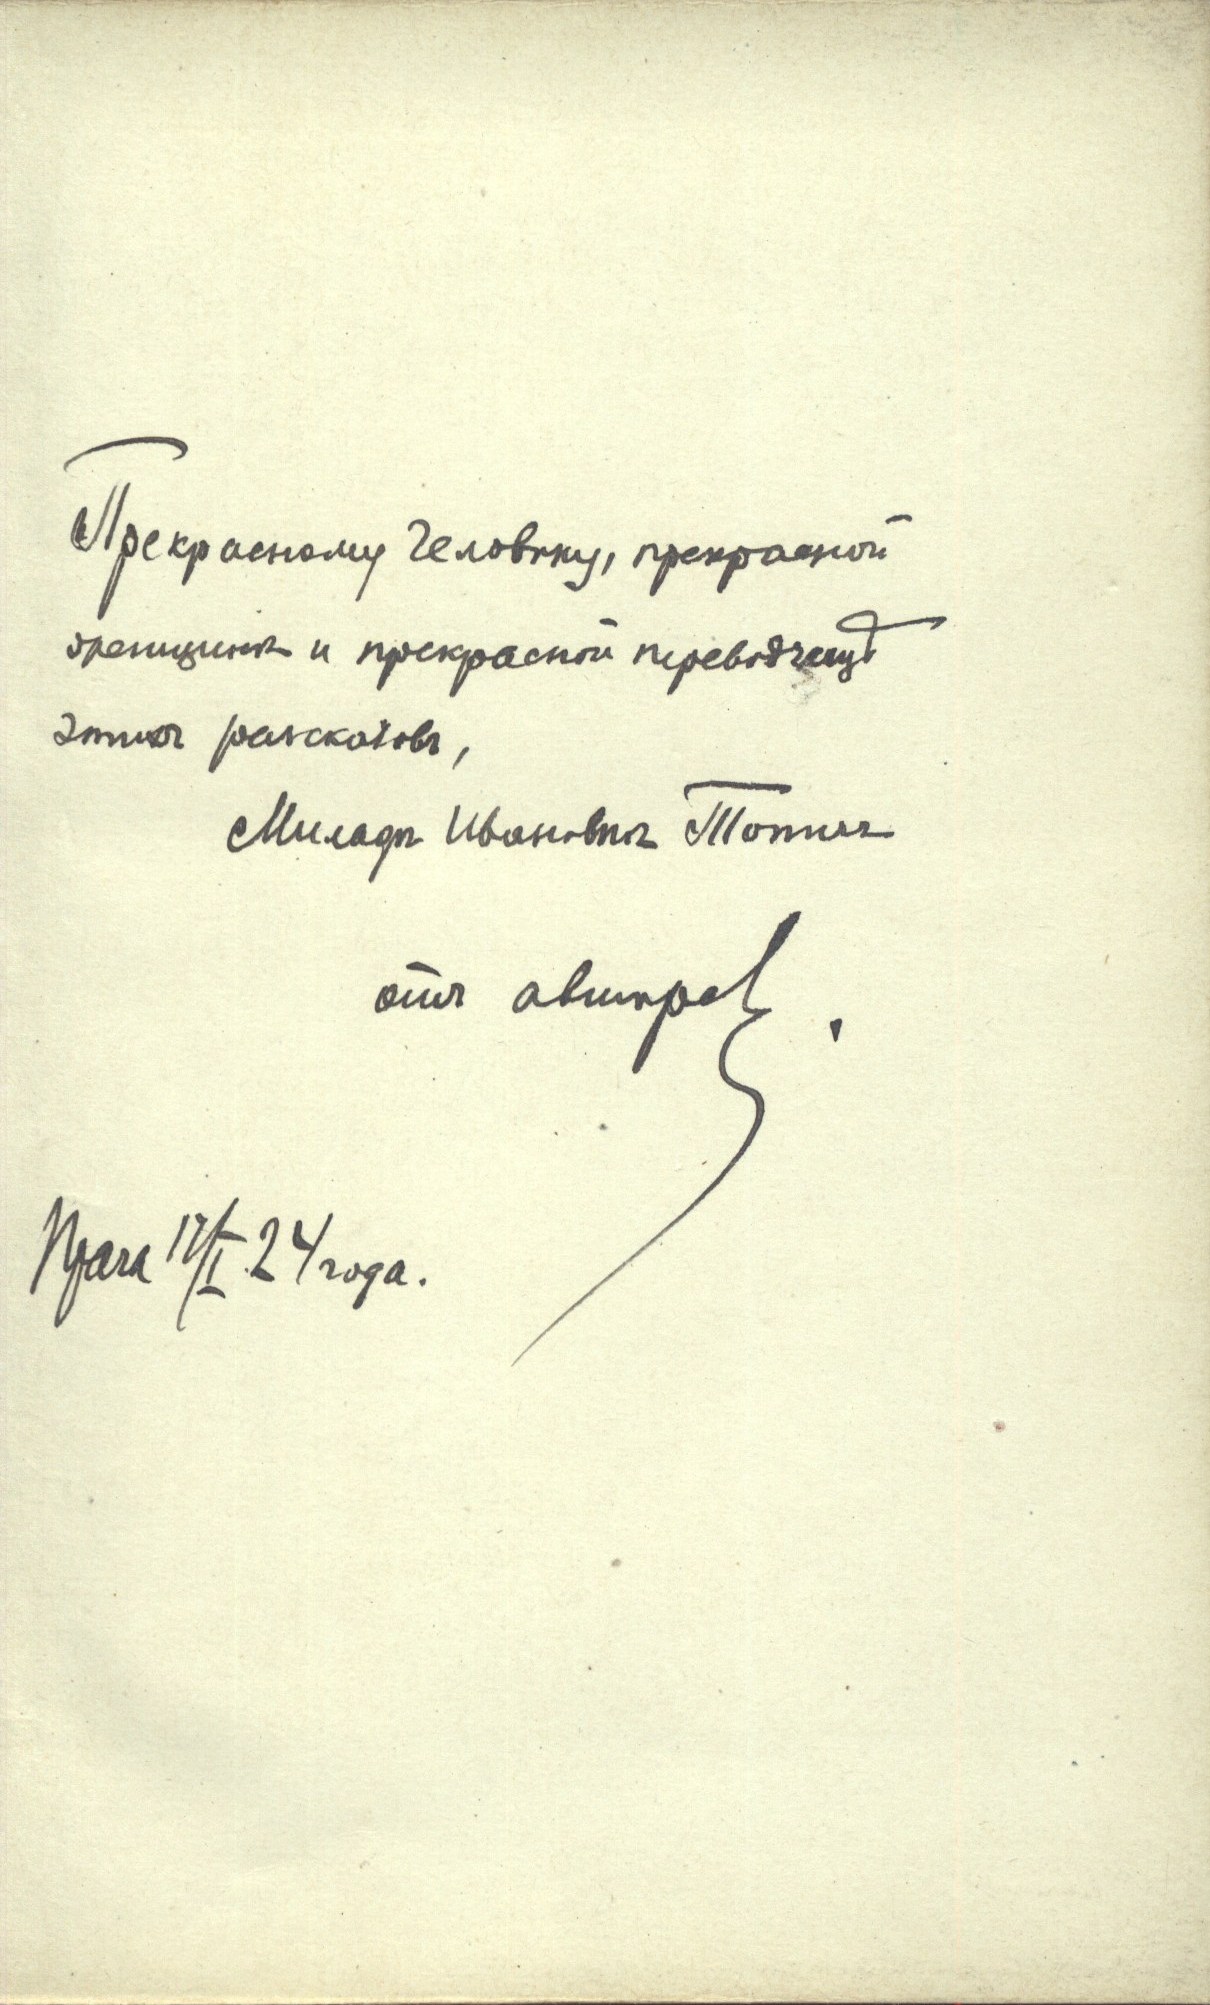 Прекрасному человѣку, прекрасной
женщинѣ и прекрасной переводчицѣ
этихъ разсказовъ,
Миладѣ Ивановнѣ Топичъ
отъ автора.
Прага 17/I 24 года.